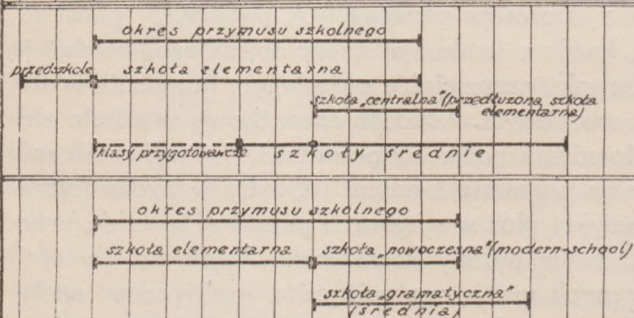 okres przymusu szkolnego
przedszkole szkoła elementarna
szkoła „centralna” (przedłużona szkoła
elementarna)
klasy przygotowawcze szkoły średnie
okres przymusu szkolnego
szkoła elementarna szkoła „nowoczesna” (modern-school)
szkoła „gramatyczna”
(średnia)